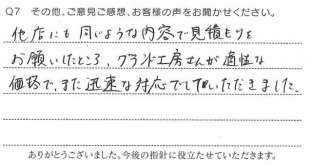 Q7 その他、ご意見ご感想、お客様の声をお聞かせください。
他店にも同じような内容で見積もりを
お願いしたところ、グランド工房さんが適性な
価格で、また迅速な対応でしていただきました。
ありがとうございました。今後の指針に役立たせていただきます。